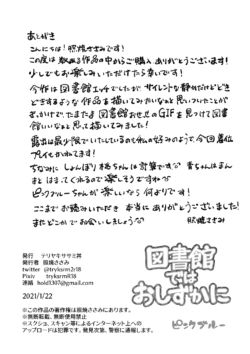 あとがき
こんにちは！照焼ささみです！
この度は数ある作品の中からご購入ありがとうございます！
少しでもお楽しみいただけたら幸いです！
今作は図書館エッチでしたが、サイレントな静けさだけどどき
どきするような作品を描いてみたいなぁと思いついたことが
きっかけで、たまたま図書館お忍びのGIFを見つけて図書
館いいなぁと思って描いてみました！
露出は最小限でいたしているのも私の好みのようで、今回着位
プレイをかねてます！
ちなみにしょんぼり桃ちゃんは計算です♡ 青ちゃんはまん
まとはまってくれるので楽しそうですね♡
ピックブルーちゃんが楽しいなら何よりです！
ここまでお読みいただき 本当にありがとうございました！
またどこかでお会いしましょう♡ 照焼ささみ
発行 テリヤキササミ丼
発行者 照焼ささみ
twitter @tryksrm2r18
Pixiv tryksrmR18
連絡 hold3307@gmail.com
2021/1/22
※この作品の著作権は照焼ささみにあります。
※無断転載、無断使用禁止
※スクショ、スキャン等によるインターネット上への
アップロードは犯罪です。発見次第、警察に通報します。
図書館
では
おしずかに
ピックブルー